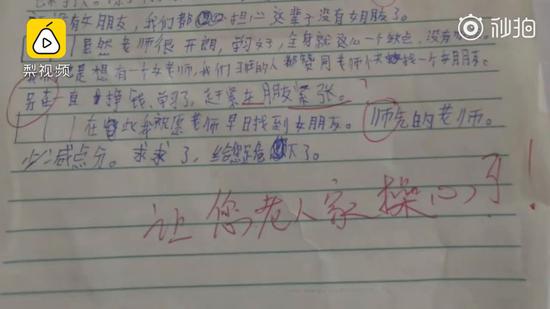 没有女朋友，我们都担心这辈子没有女朋友了。
虽然老师很开朗，学习好，全身就这么一个缺点，没有
是想有一个女老师，我们班的人都赞同老师今天找一个女朋友。
挣钱，学习了，赶紧
在此我就愿老师早日找到女朋友。帅气的老师。
少减点分。求求了，给您跪下了。
让您老人家操心了！
梨视频
秒拍